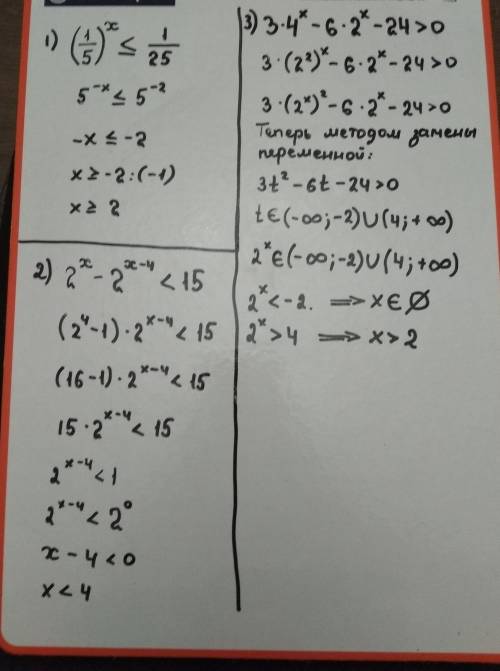 1) (1/5)^x ≤ 1/25
5^-x ≤ 5^-2
-x ≤ -2
x ≥ -2:(-1)
x ≥ 2
2) 2^x - 2^(x-4) < 15
(2^4-1)·2^(x-4) < 15
(16-1)·2^(x-4) < 15
15·2^(x-4) < 15
2^(x-4) < 1
2^(x-4) < 2^0
x - 4 < 0
x < 4
3) 3·4^x - 6·2^x - 24 > 0
3·(2^2)^x - 6·2^x - 24 > 0
3·(2^x)^2 - 6·2^x - 24 > 0
Теперь методом замены
переменной:
3t^2 - 6t - 24 > 0
t∈(-∞;-2)∪(4;+∞)
2^x∈(-∞;-2)∪(4;+∞)
2^x < -2. ⟹ x∈∅
2^x > 4 ⟹ x > 2